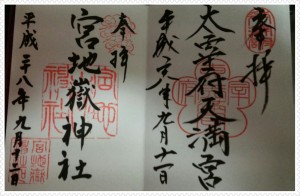 奉拝
太宰府天満宮
平成二八年九月十一日
奉拝
宮地嶽神社
平成二八年九月十二日